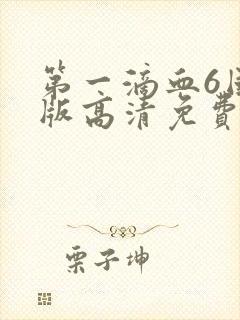 第一滴血6国
版高清免费
栗子坤